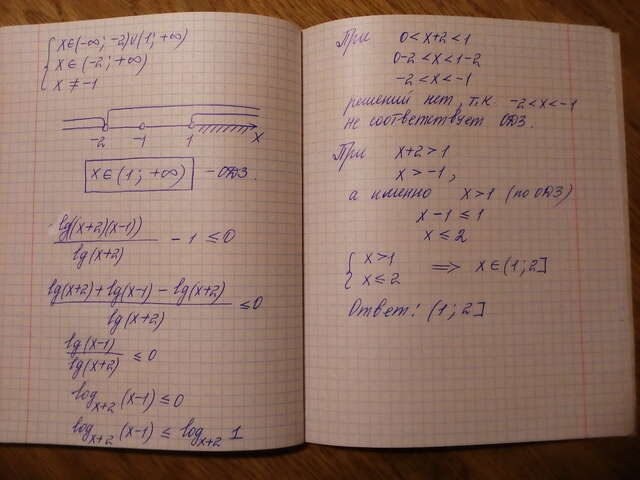 { x∈(-∞; -2)∪(1; +∞)
x∈(-2; +∞)
x ≠ -1
-2 -1 1 x
x∈(1; +∞) - ОДЗ.
lg(x+2)(x-1) / lg(x+2) - 1 ≤ 0
lg(x+2)+lg(x-1) - lg(x+2) / lg(x+2) ≤ 0
lg(x-1) / lg(x+2) ≤ 0
log_{x+2} (x-1) ≤ 0
log_{x+2} (x-1) ≤ log_{x+2} 1
При 0 < x+2 < 1
0-2 < x < 1-2
-2 < x < -1
решений нет, т.к. -2 < x < -1
не соответствует ОДЗ.
При x+2 > 1
x > -1,
а именно x > 1 (по ОДЗ)
x - 1 ≤ 1
x ≤ 2
{ x > 1
x ≤ 2 ⟹ x∈(1; 2]
Ответ: (1; 2]